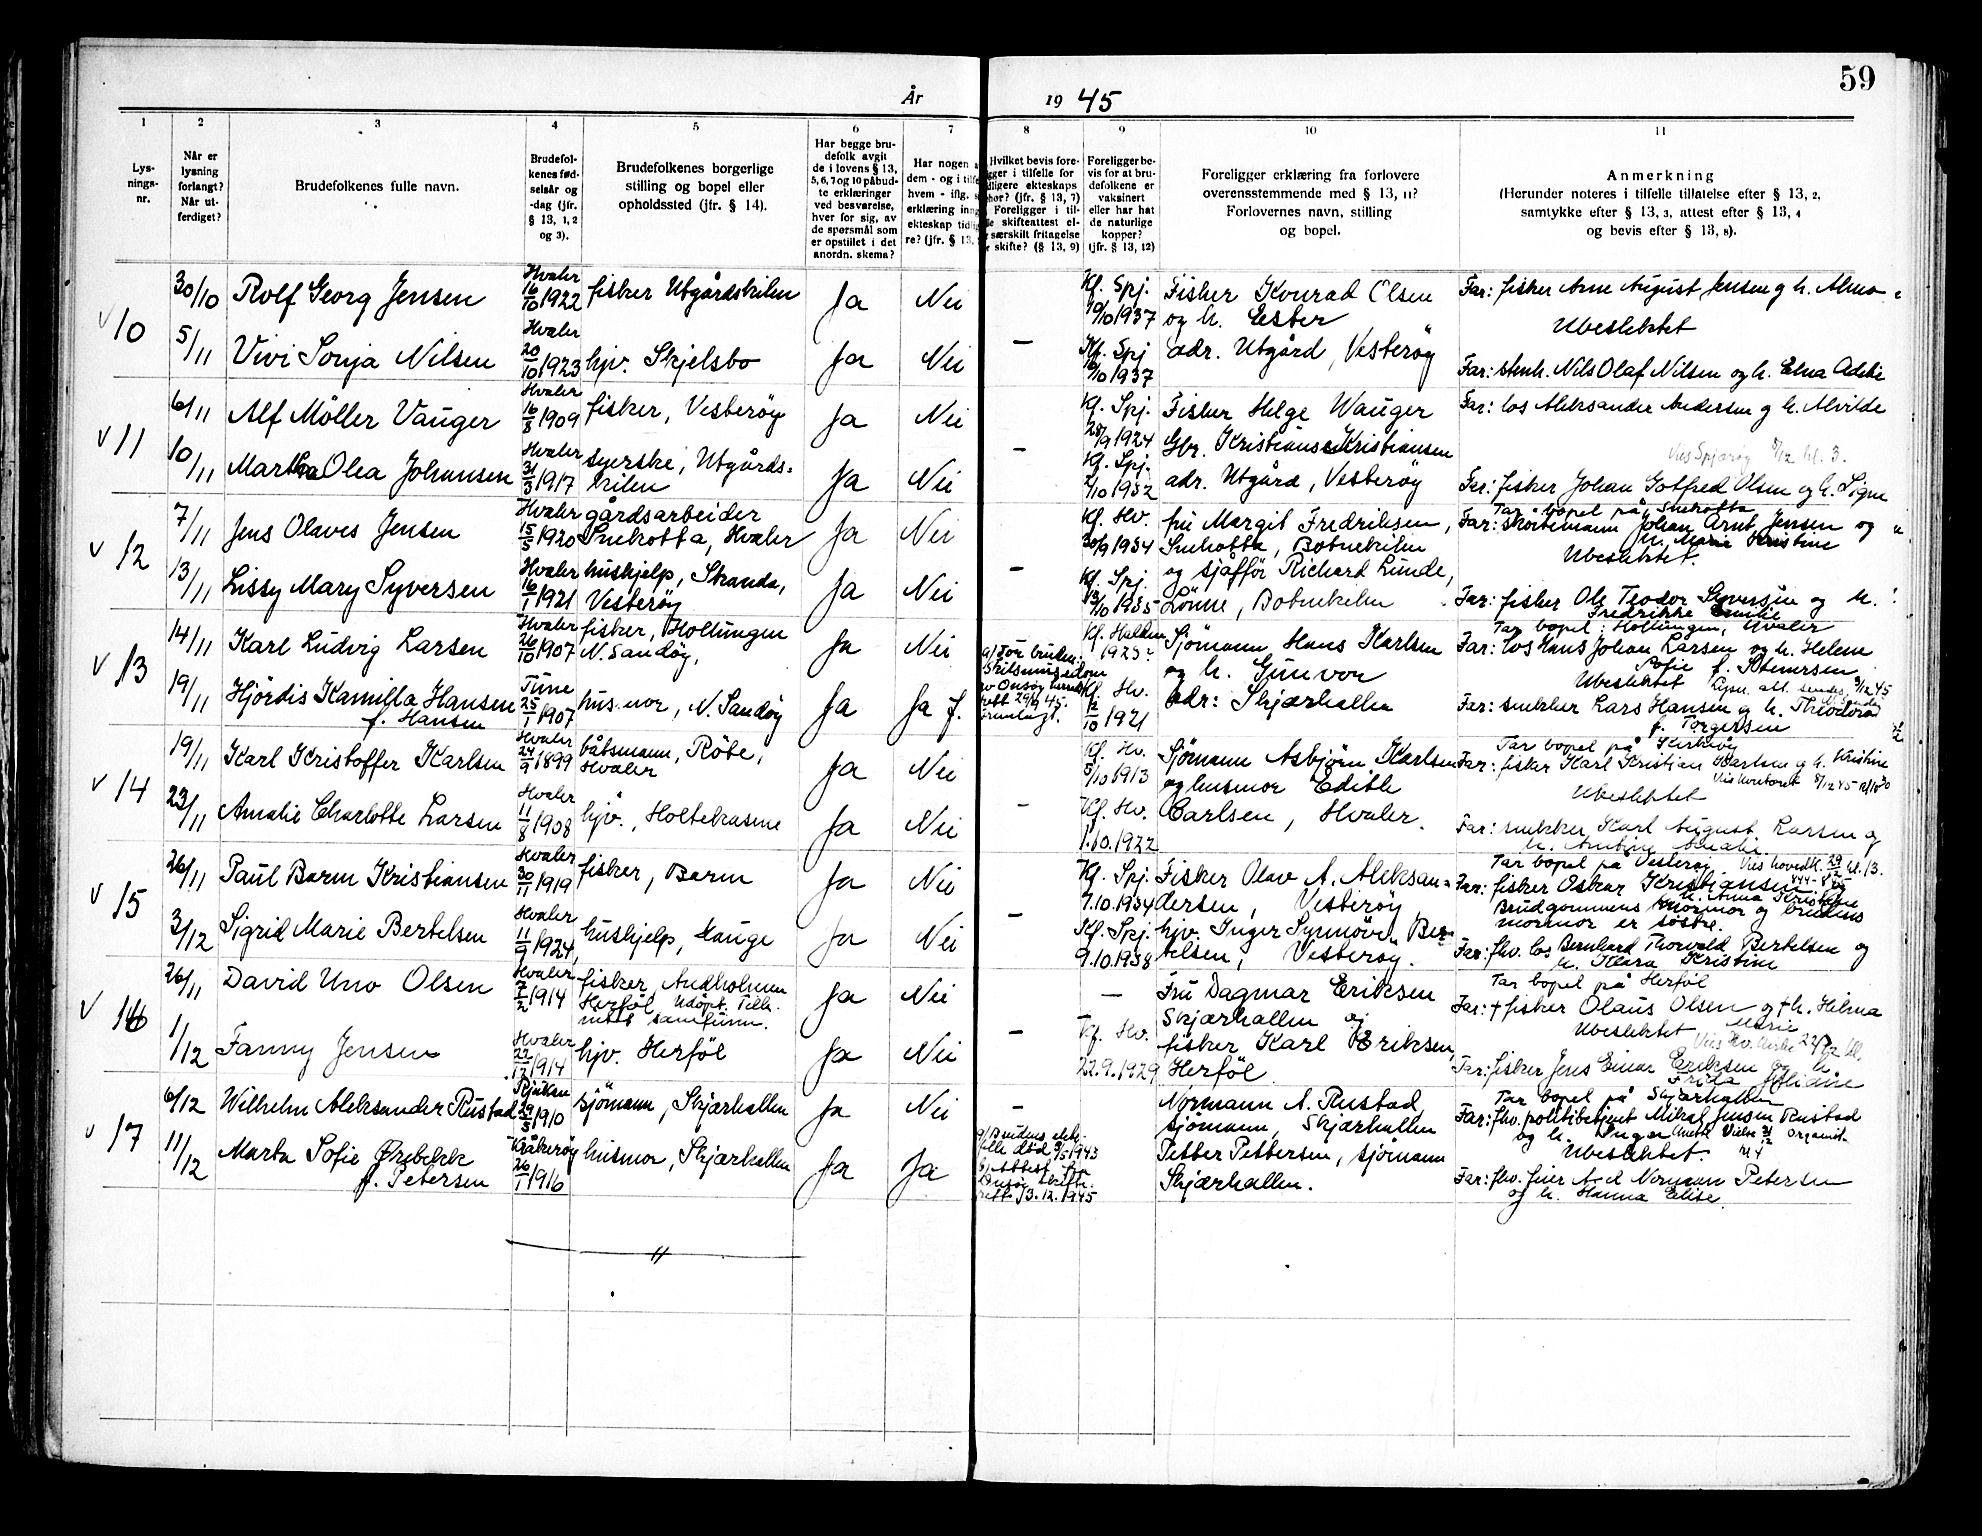 59
År 1945
1 2 3 4 5 6 7 8 9 10 11
Lys-
nings-
nr.
Når er
lysning
forlangt?
Når ut-
ferdiget?
Brudefolkenes fulle navn.
Brudefol-
kenes fød-
selsår og
-dag (jfr.
§ 13, 1, 2
og 3).
Brudefolkenes borgerlige
stilling og bopel eller
opholdssted (jfr. § 14).
Har begge bru-
defolk avgit
de i lovens § 13,
5, 6, 7 og 10 påbud-
te erklæringer
ved besvarelse,
hver for sig, av
de spørsmål som
er opstillet i det
anordn. skema?
Har nogen a
dem - og i tilfe
hvem - iflg. s
erklæring inng
ekteskap tidlig
re? (jfr. § 13,
Hvilket bevis fore-
gger i tilfelle for
dligere ekteskaps
hør? (jfr. § 13, 7)
Foreligger i til-
le skifteattest el-
særskilt fritagelse
skifte? (§ 13, 9)
Foreligger be-
vis for at bru-
defolkene er
vaksinert
eller har hat
de naturlige
kopper?
(jfr. § 13, 12)
Foreligger erklæring fra forlovere
overensstemmende med § 13, 11?
Forlovernes navn, stilling
og bopel.
Anmerkning
(Herunder noteres i tilfelle tillatelse efter § 13, 2,
samtykke efter § 13, 3, attest efter § 13, 4
og bevis efter § 13, 8).
v 10
30/10 Rolf Georg Jensen
Hvaler
16/10 1922
fisker Utgårdskilen
Ja Nei
Kf. Spj.
10/10 1937
Fisker Konrad Olsen
og h. Ester
Far: fisker Arne August Jensen og h. Alma
Ubeslektet
5/11 Vivi Sonja Nilsen
Hvaler
20/10 1923
hjv. Skjelsbo
Ja Nei –
Kf. Spj
10/10 1937
adr. Utgård, Vesterøy
Far: stenh. Nils Olaf Nilsen og h. Elna
v 11
6/11 Alf Möller Vauger
Hvaler
16/8 1909
fisker, Vesterøy
Ja Nei
Kf. Spj.
28/9 1924
Fisker Helge Wauger
Gbr. Kristians Kristiansen
Far: los Aleksander Andersen og h. Alvilde
10/11 Martha Olea Johansen
Hvaler
31/3 1917
syerske, Utgårds-
kilen
Ja Nei –
Kf. Spj.
2/10 1932
adr. Utgård, Vesterøy
Viet Spjærøy 8/12 kl. 3.
Far: fisker Johan Gotfred Olsen og h. Signe
v 12
7/11 Jens Olaves Jensen
Hvaler
15/5 1920
gårdsarbeider
Snekotta, Hvaler
Ja Nei
Kf. Hv.
30/9 1934
fru Margit Fredriksen,
Snekotta, Botnekilen
Tar bopel på Snekotta
Far: skortemann Johan Arnt Jensen og
h. Marie Kristine
Ubeslektet.
13/11 Lissy Mary Syversen
Hvaler
16/1 1921
hushjelp, Stranda,
Vesterøy
Ja Nei –
Kf. Spj.
13/10 1935
og sjåffør Richard Lunde,
Lönne, Botnekilen
Far: fisker Ole Teodor Syversen og h.
Fredrikke Emilie
v 13
14/11 Karl Ludvig Larsen
Hvaler
26/10 1907
fisker, Holtungen
N. Sandøy,
Ja Nei
Kf. Halden
1923?
Sjømann Hans Karlsen
og h. Gunvor
Tar bopel: Holtungen, Hvaler
Far: los Hans Johan Larsen og h. Helene
Sofie f. Stenersen
Ubeslektet
19/11 Hjördis Kamilla Hansen
f. Hansen
Tune
25/1 1907
husmor, N. Sandøy
Ja Ja f.
Kf. Hv.
2/10 1921
adr: Skjærhallen
Far: snekker Lars Hansen og h. Theodora
f. Torgersen
v 14
19/11 Karl Kristoffer Karlsen
Hvaler
24/9 1899
båtsmann, Röbe,
Hvaler
Ja Nei
Kf. Hv.
5/10 1913
Sjømann Asbjørn Karlsen
og husmor Edith
Tar bopel på Kirkøy
Far: fisker Karl Kristian Karlsen og h. Kristine
Ubeslektet
23/11 Amalie Charlotte Larsen
Hvaler
11/8 1908
hjv., Holtekasene
Ja Nei –
Kf. Hv.
1.10.1922
Carlsen, Hvaler.
Far: snekker Karl August Larsen og
h. Amalie
v 15
26/11 Paul Barm Kristiansen
Hvaler
30/11 1919
fisker, Barm
Ja Nei
Kf. Spj.
7.10.1934
Fisker Olav A. Aleksan-
dersen, Vesterøy
Tar bopel på Vesterøy
Far: fisker Oskar Kristiansen og
h. Anna Kristine
Brudgommens mormor og brudens
mormor er søstre.
3/12 Sigrid Marie Bertelsen
Hvaler
11/9 1924,
hushjelp, Hauge
Ja Nei –
Kf. Spj.
9.10.1938
hjv. Inger Synnöve Ber-
telsen, Vesterøy.
Far: fhv. los Bernhard Thorvald Bertelsen og
h. Klara Kristine
v 16
26/11 David Uno Olsen
Hvaler
7/2 1914
fisker, Andholmen
Herföl Udöpt. Tilh.
samfunn.
Ja Nei
–
Fru Dagmar Eriksen
Skjærhallen og
Tar bopel på Herföl
Far: † fisker Olaus Olsen og † h. Helma
Marie
Ubeslektet
1/12 Fanny Jensen
Hvaler
22/12 1914
hjv. Herföl
Ja Nei –
Kf. Hv.
22.9.1929
fisker Karl Eriksen,
Herföl
Far: fisker Jens Einar Eriksen og h.
Frida
v 17
6/12 Wilhelm Aleksander Rustad
Rjukan
29/5 1910
sjömann, Skjærhallen
Ja Nei –
Normann A. Rustad
sjömann, Skjærhallen
Tar bopel på Skjærhallen
Far: fhv. politibetjent Mikal Jensen Rustad
og h. Inger
Ubeslektet.
11/12 Marta Sofie Ørebekk
f. Petersen
Kråkerøy
26/1 1916
husmor, Skjærhallen
Ja Ja
Petter Pettersen, sjömann
Skjærhallen.
Far: fhv. fører Axel Norman Petersen
og h. Hanna Elise.